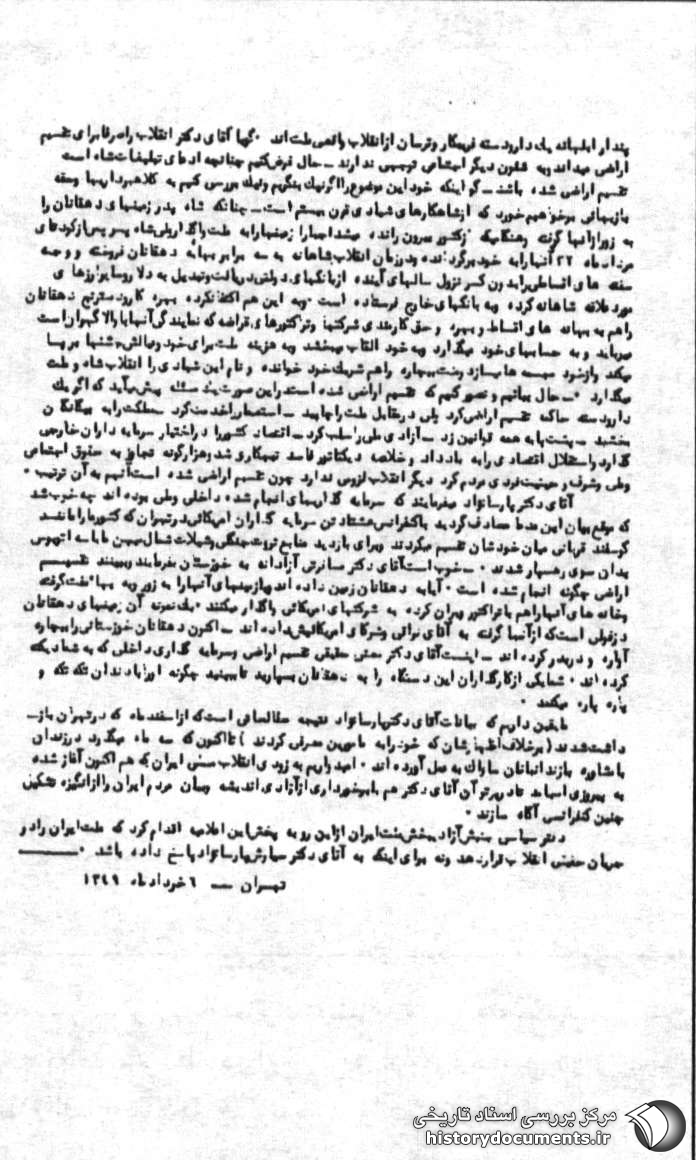 پندار ابلهانه یك دارودسته فریبکار و ترسان از انقلاب واقعی ملت اند . گویا آقای دکتر انقلاب را صرفا برای تقسیم
اراضی میداند وبه شئون دیگر اجتماعی توجهی ندارند ــ حال فرض کنیم چنانچه ادعای تبلیغات شاه است
تقسیم اراضی شده باشد ــ گو اینکه خود این موضوع را اگر نیك بنگریم ونیك بررسی کنیم به کلاهبرداریها وحقه
بازیهائی برخواهیم خورد که از شاهکارهای شیادی قرن بیستم است ــ چنانکه شاه پدر زمینهای دهقانان را
به زور از آنها گرفته وهنگامیکه از کشور بیرون رانده میشد اجبارا زمینها را به ملت واگذار ولی شاه پسر پس از کودتای
مرداد ماه ۳۲ آنها را به خود برگردانده ودر زمان انقلاب شاهانه به سه برابر بها به دهقانان فروخته و وجه
سفته های اقساطی را بدون کسر نزول سالهای آینده از بانکهای دولتی دریافت وتبدیل به دلار وسایر ارزهای
مورد علاقه شاهانه کرده وبه بانکهای خارج فرستاده است وبه این هم اکتفا نکرده بهره کار ودسترنج دهقانان
را هم به بهانه های اقساط و بهره و حق کارمندی شرکتها که نمایندگی آنها با بالا گهران است
میرباید و به حسابهای خود میگذارد وبه خود القاب میبخشد وبه هزینه ملت برای خود جشنها برپا
میکند وازخود مجسمه ها میسازد وملت بیچاره را هم شریك خود خوانده و نام این شیادی را انقلاب شاه و ملت
میگذارد . ــ حال بیائیم و تصور کنیم که تقسیم اراضی شده است در این صورت چند مسئله پیش میآید که اگر یك
دارودسته حاکمه تقسیم اراضی کرد ولی در مقابل ملت را چاپید ــ استعمار را خدمت کرد ــ مملکت را به بیگانگان
بخشید ــ پشت پا به همه قوانین زد ــ آزادی ملی را سلب کرد ــ اقتصاد کشور را در اختیار سرمایه داران خارجی
گذارد واستقلال اقتصادی را به باد داد و خلاصه دیکتاتور فاسد تبهکاری شد وهزارگونه تجاوز به حقوق اجتماعی
وملی وشرف و حیثیت فردی مردم کرد دیگر انقلاب لزومی ندارد چون تقسیم اراضی شده است آنهم به آن ترتیب .
آقای دکتر پارسانژاد میفرمایند که سرمایه گذاریهای انجام شده داخلی وملی بوده اند چه خوب شد
که موقع بیان این مدعا مصادف گردید با کنفرانس هشتاد تن سرمایه گذاران امریکائی در تهران که کشور ما را مانند
گوسفند قربانی میان خودشان تقسیم میکردند وبرای بازدید منابع ثروت جنگلی وشیلات شمال میهن ما با سه اتوبوس
بدان سوی رهسپار شدند . ــ خوب است آقای دکتر مسافرتی آزادانه به خوزستان بفرمایند وببینند تقسیم
اراضی چگونه انجام شده است . آیا به دهقانان زمین داده اند ویا زمینهای آنها را به زور وبه بهای مفت گرفته
وخانه های آنها را هم با تراکتور ویران کرده به شرکتهای امریکائی واگذار میکنند . یك نمونه آن زمینهای دهقانان
دزفولی است که از آنها گرفته به آقای نراقی وشرکای امریکائیش داده اند ــ اکنون دهقانان خوزستانی را بیچاره
آواره و دربدر کرده اند ــ اینست آقای دکتر معنی حقیقی تقسیم اراضی وسرمایه گذاری داخلی که به شما دیکته
کرده اند . شما یکی از کارگذاران این دستگاه را به دهقانان بسپارید تا ببینید چگونه اورا با دندان تکه تکه و
پاره پاره میکنند .
ما یقین داریم که بیانات آقای دکتر پارسانژاد نتیجه مطالعاتی است که از اسفند ماه که در تهران باز ــ
داشت شدند ( برخلاف اظهار ایشان که خود را به مامورین معرفی کردند ) تا اکنون که سه ماه میگذرد در زندان
با مشاوره بازندانبانان ساواك به عمل آورده اند . امیدواریم به زودی انقلاب سنی ایران که هم اکنون آغاز شده
به پیروزی انجامد تا دیرتر آن آقای دکتر هم با برخورداری از آزادی اندیشه وبیان مردم ایران را از انگیزه تشکیل
چنین کنفرانسی آگاه سازند .
دفتر سیاسی جنبش آزادیبخش ملت ایران از این رو به پخش این اعلامیه اقدام کرد که ملت ایران را در
جریان حقیقی انقلاب قرار دهد ونه برای اینکه به آقای دکتر سیاوش پارسانژاد پاسخ داده باشد .
تهران ــ ۶ خرداد ماه ۱۳۴۹
مرکز بررسی اسناد تاریخی
historydocuments.ir